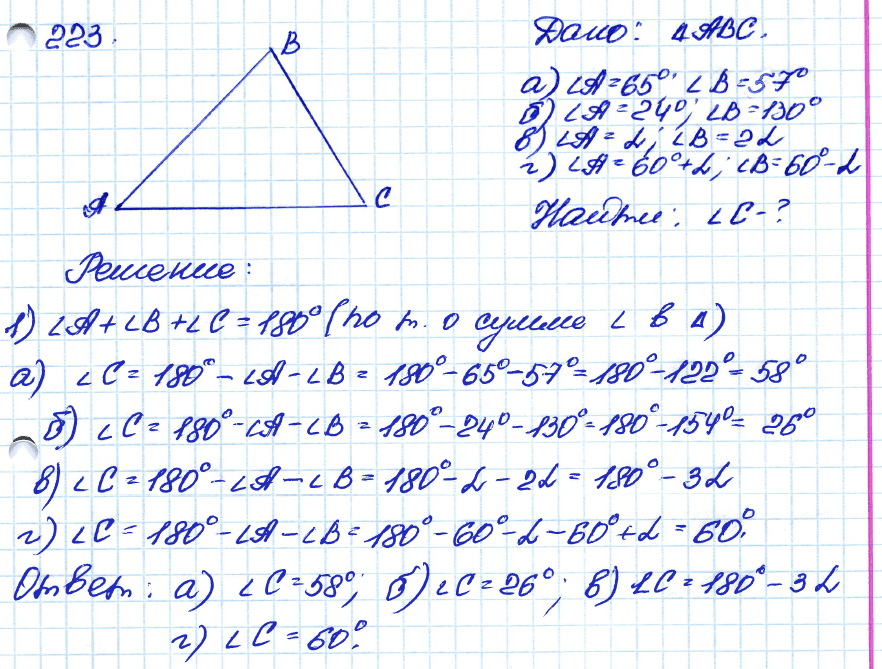 223.
B
A
C
Дано: ΔABC.
а) ∠A=65°; ∠B=57°
б) ∠A=24°; ∠B=130°
в) ∠A=α; ∠B=2α
г) ∠A=60°+α; ∠B=60°-α
Найти: ∠C-?
Решение:
1) ∠A+∠B+∠C=180° (по т. о сумме ∠ в Δ)
а) ∠C=180°-∠A-∠B=180°-65°-57°=180°-122°=58°
б) ∠C=180°-∠A-∠B=180°-24°-130°=180°-154°=26°
в) ∠C=180°-∠A-∠B=180°-α-2α=180°-3α
г) ∠C=180°-∠A-∠B=180°-60°-α-60°+α=60°.
Ответ: а) ∠C=58°; б) ∠C=26°; в) ∠C=180°-3α
г) ∠C=60°.